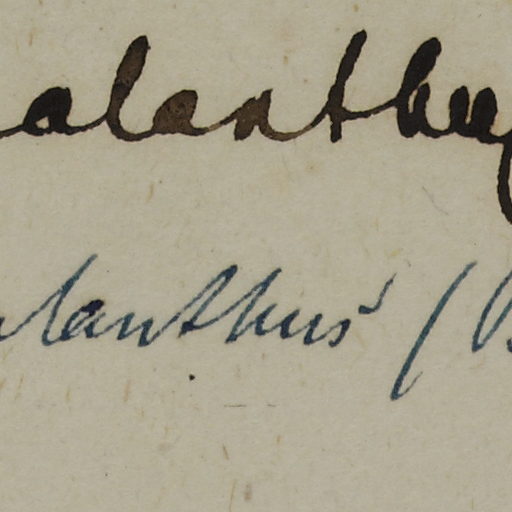 alanthus
alanthus (B